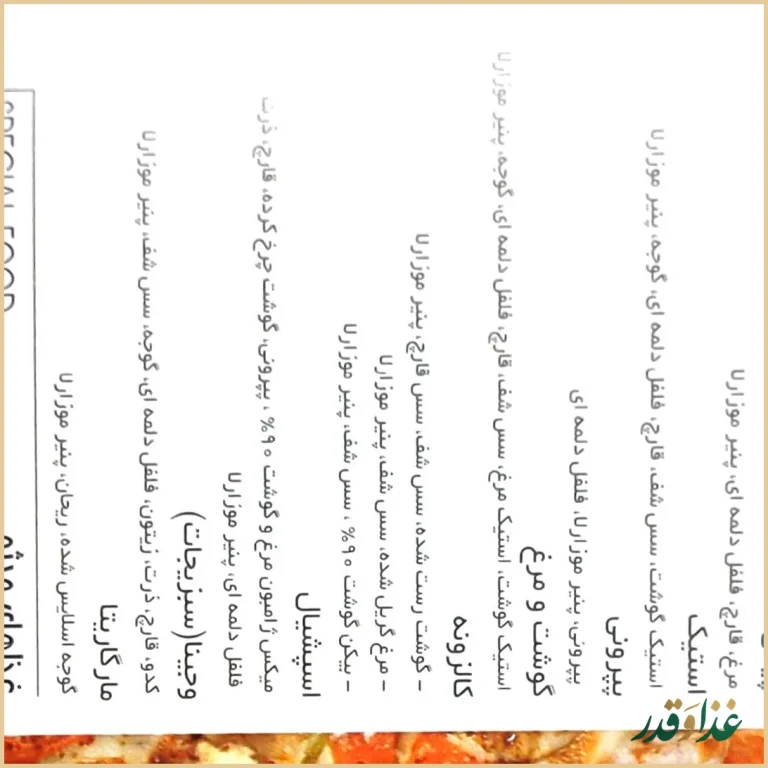 مرغ، قارچ، فلفل دلمه ای، پنیر موزارلا
استیک
استیک گوشت، سس شف، قارچ، فلفل دلمه ای، گوجه، پنیر موزارلا
پپرونی
پپرونی، پنیر موزارلا، فلفل دلمه ای
گوشت و مرغ
استیک گوشت، استیک مرغ، سس شف، قارچ، فلفل دلمه ای، گوجه، پنیر موزارلا
کالزونه
- گوشت رست شده، سس شف، سس قارچ، پنیر موزارلا
- مرغ گریل شده، سس شف، پنیر موزارلا
- بیکن گوشت ۹۰% ، سس شف، پنیر موزارلا
اسپشیال
میکس ژامبون مرغ و گوشت ۹۰% ، پپرونی، گوشت چرخ کرده، قارچ، ذرت
فلفل دلمه ای، پنیر موزارلا
وجیینا(سبزیجات)
کدو، قارچ، ذرت، زیتون، فلفل دلمه ای، گوجه، سس شف، پنیر موزارلا
مارگاریتا
گوجه اسلایس شده، ریحان، پنیر موزارلا
SPECIAL FOOD
غذاوقدر